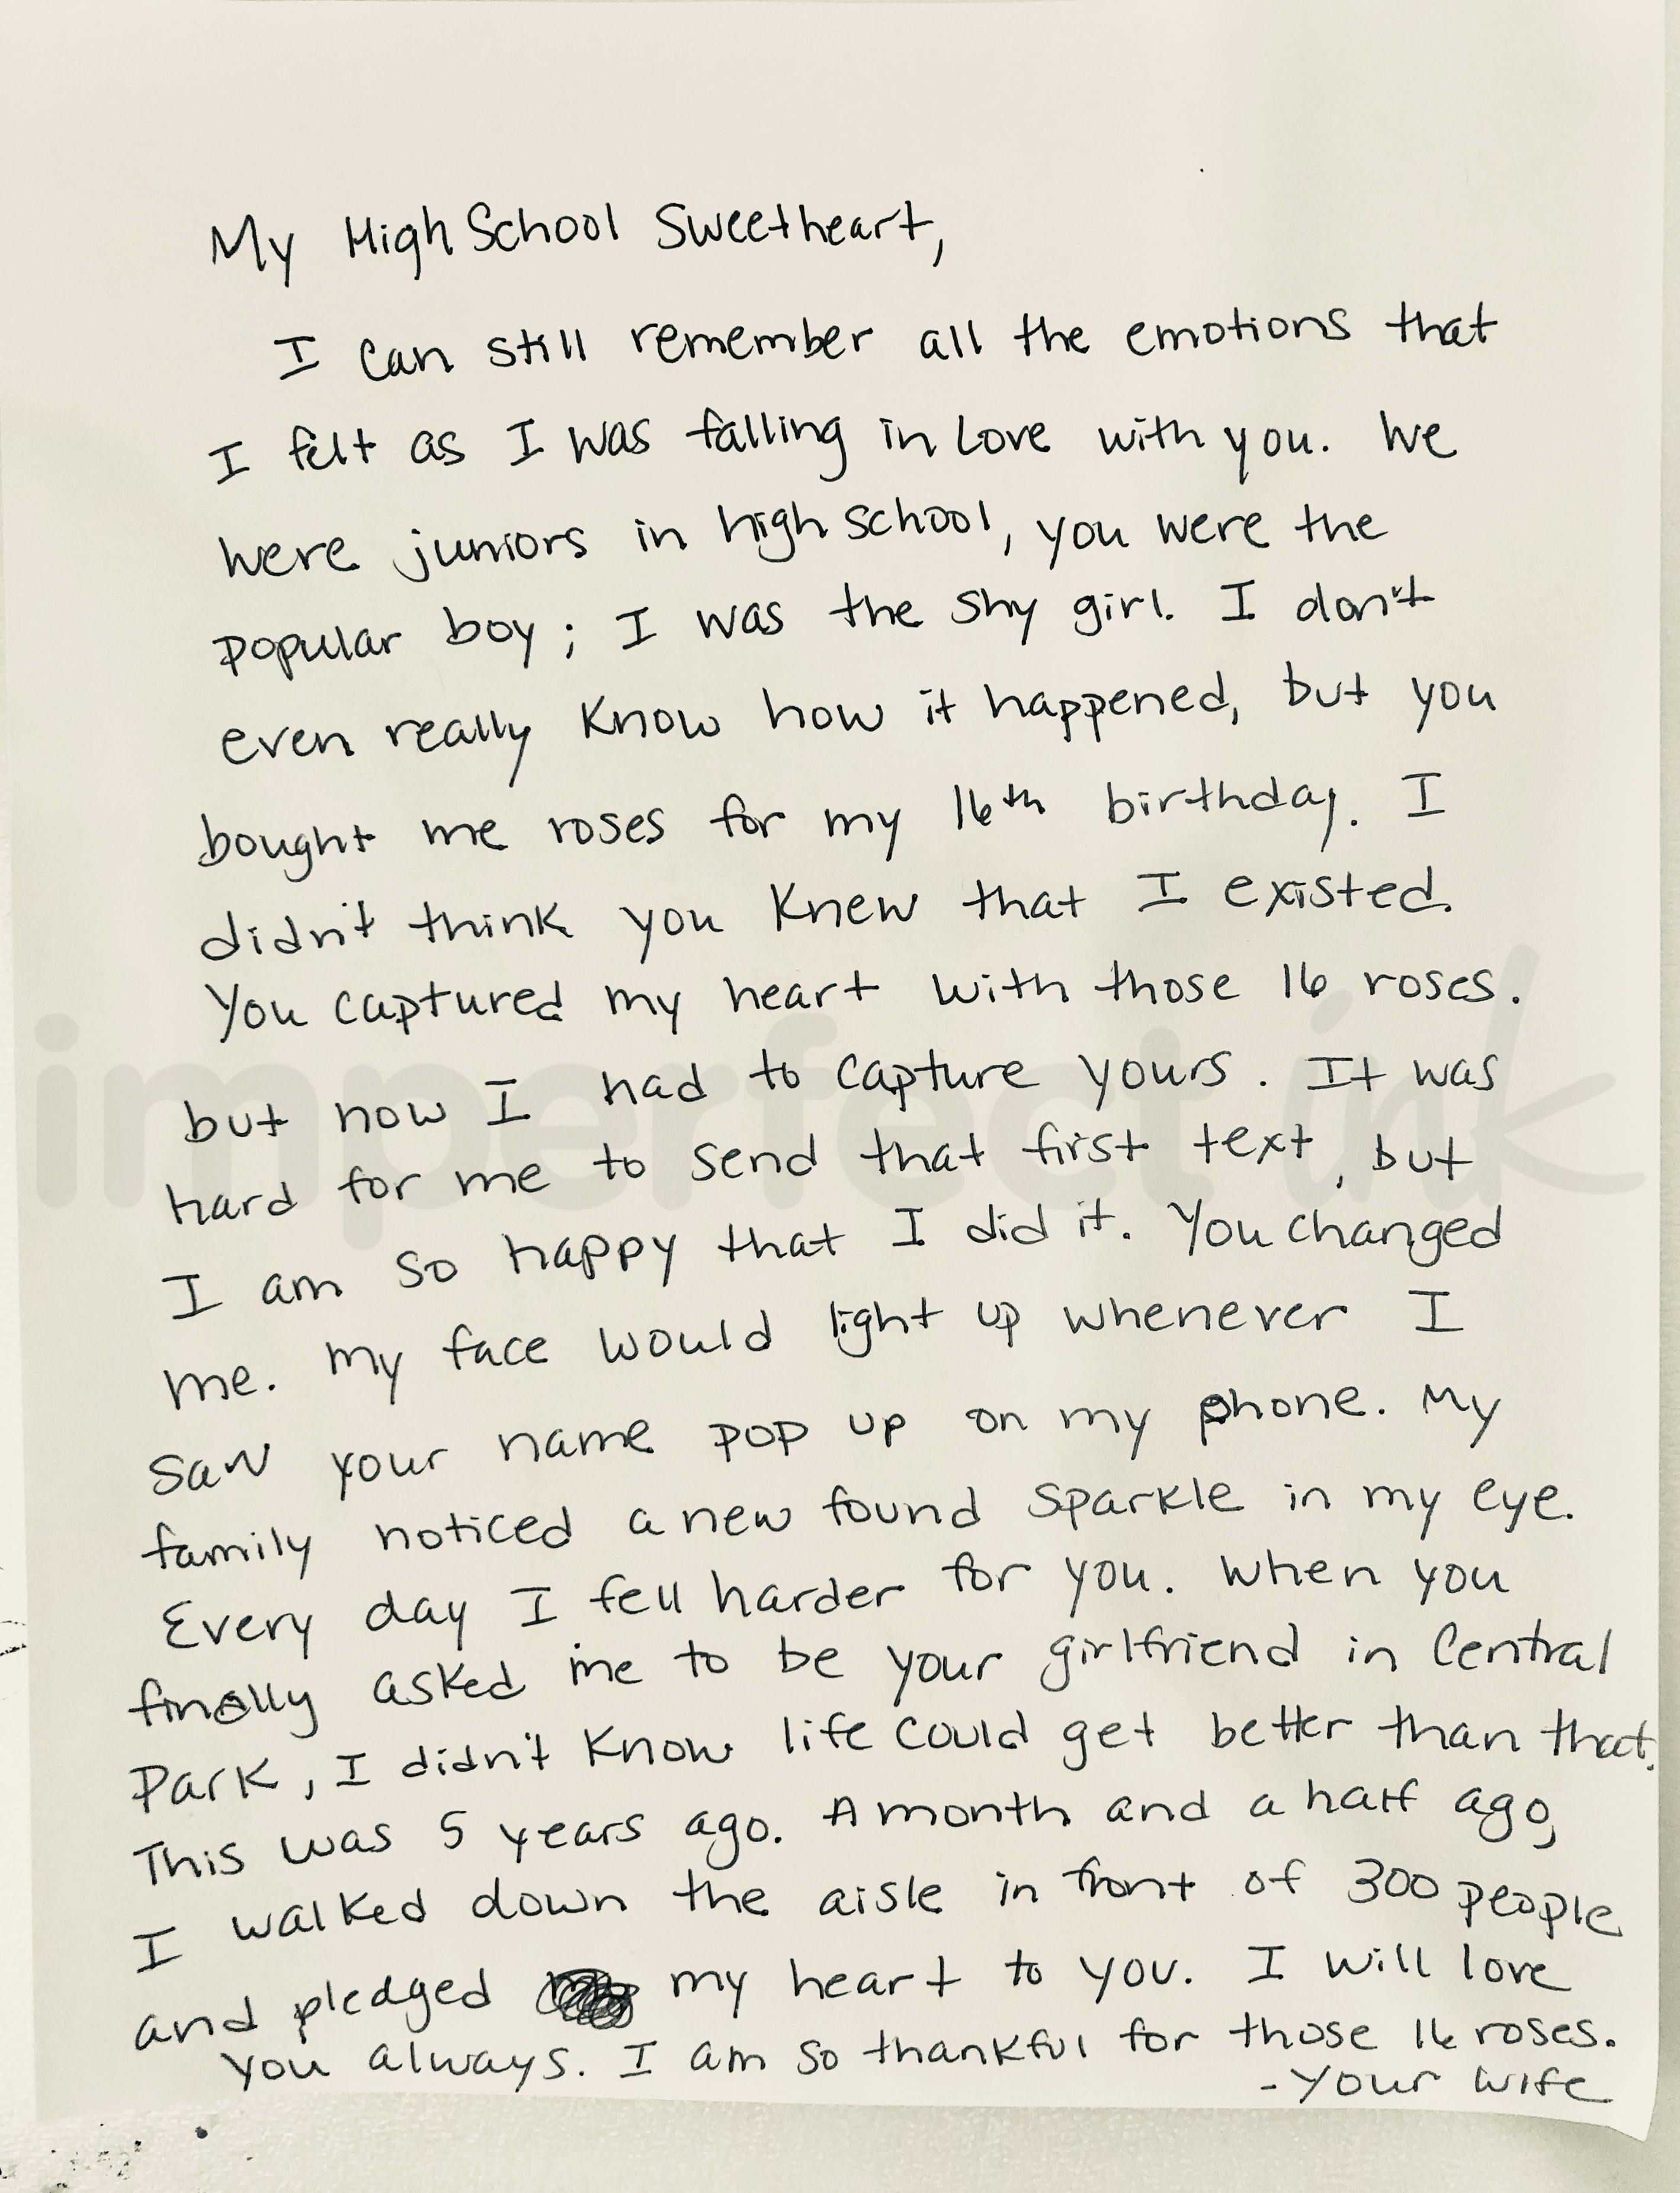 My High School Sweetheart,
I can still remember all the emotions that
I felt as I was falling in love with you. We
were juniors in high school, you were the
popular boy; I was the shy girl. I don't
even really know how it happened, but you
bought me roses for my 16th birthday. I
didn't think you knew that I existed.
You captured my heart with those 16 roses.
but now I had to capture yours. It was
hard for me to send that first text, but
I am so happy that I did it. You changed
me. my face would light up whenever I
saw your name pop up on my phone. My
family noticed a new found sparkle in my eye.
Every day I fell harder for you. When you
finally asked me to be your girlfriend in Central
Park, I didn't know life could get better than that.
This was 5 years ago. A month and a half ago,
I walked down the aisle in front of 300 people
and pledged my heart to you. I will love
you always. I am so thankful for those 16 roses.
- Your wife
imperfect ink